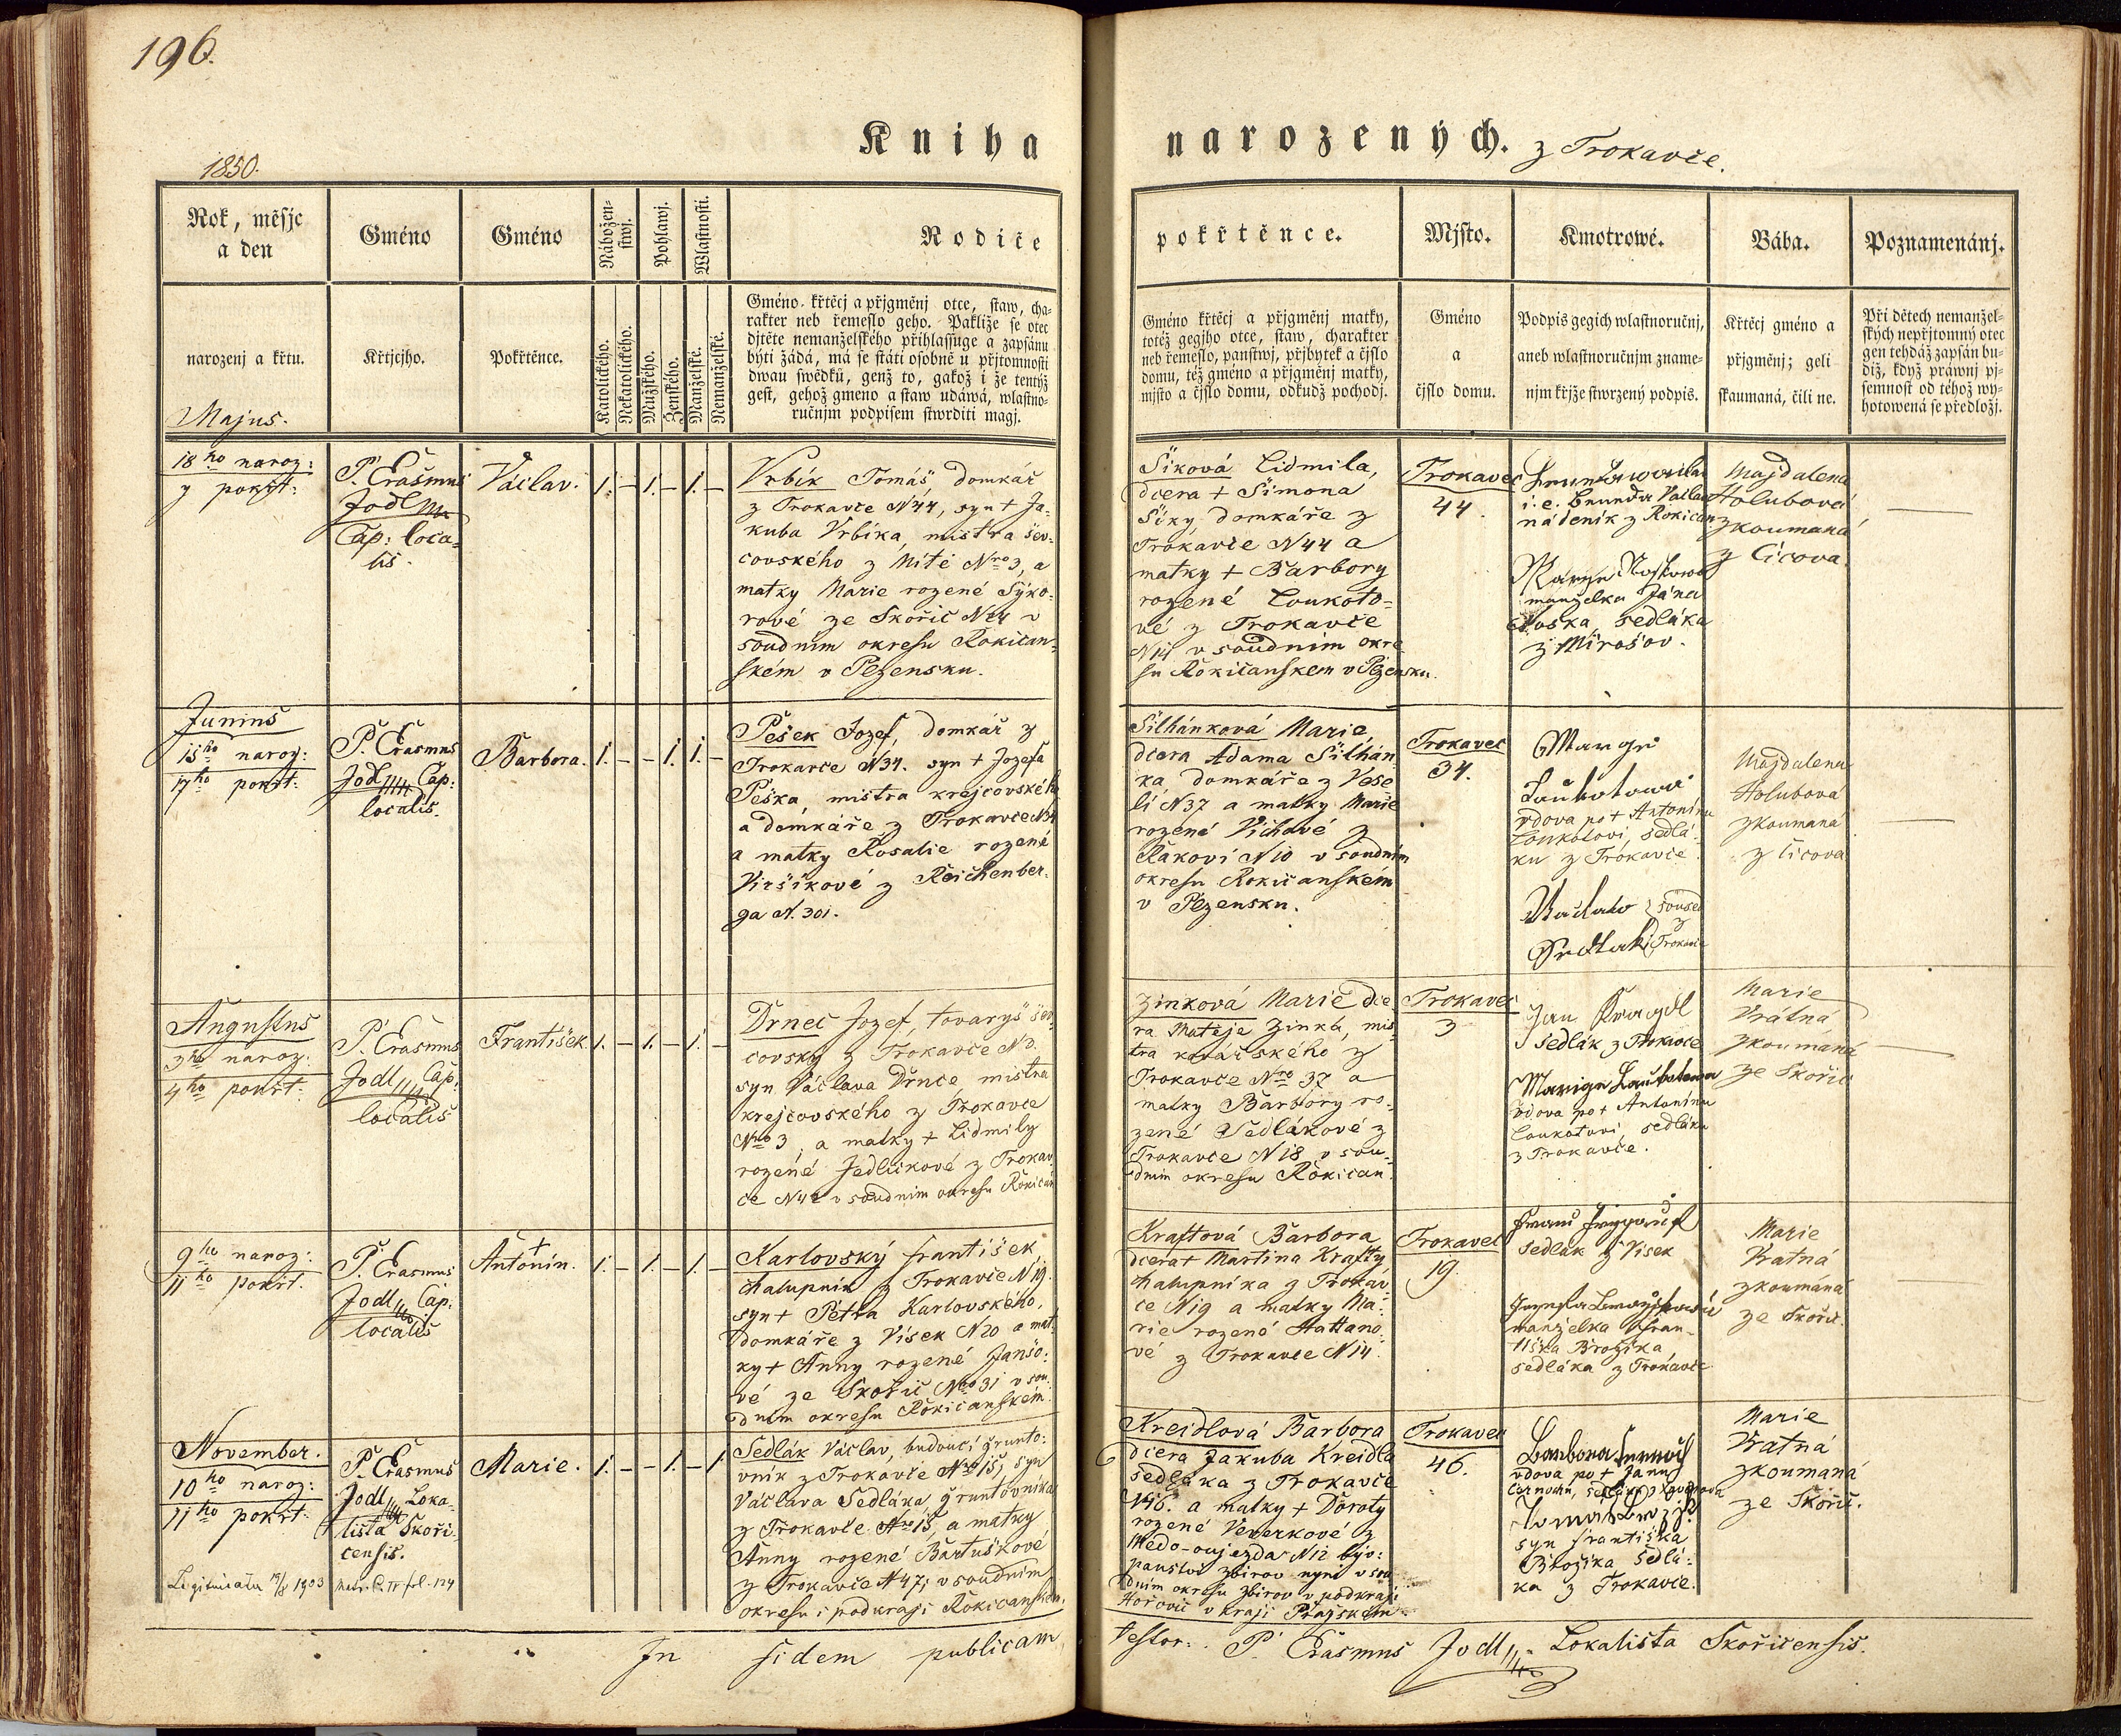 196.
Kniha
narozených. z Trokavče.
1850.
Rok, měsjc
a den
narozenj a křtu.
Majus.
Gméno
Křtjcjho.
Gméno
Pokřtěnce.
Nábožen-
stwj.
Katolického.
Nekatolického.
Pohlawj.
Mužského.
Ženského.
Wlastnosti.
Manželské.
Nemanželské.
Rodiče
Gméno křtěcj a přjgměnj otce, staw, cha-
rakter neb řemeslo geho. Pakliže se otec
djtěte nemanželského přihlassuge a zapsánu
býti žádá, má se státi osobně u přjtomnosti
dwau swědků, genž to, gakož i že tentýž
gest, gehož gmeno a staw udáwá, wlastno-
ručnjm podpisem stwrditi magj.
pokřtěnce.
Gméno křtěcj a přjgměnj matky,
totéž gegjho otce, staw, charakter
neb řemeslo, panstwj, přjbytek a čjslo
domu, též gméno a přjgměnj matky,
mjsto a čjslo domu, odkudž pochodj.
Mjsto.
Gméno
a
čjslo domu.
Kmotrowé.
Podpis gegich wlastnoručnj,
aneb wlastnoručnjm zname-
njm křjže stwrzený podpis.
Bába.
Křtěcj gméno a
přjgměnj; geli
skaumaná, čili ne.
Poznamenánj.
Při dětech nemanžel-
ských nepřjtomný otec
gen tehdáž zapsán bu-
diž, když práwnj pj-
semnost od téhož wy-
hotowená se předložj.
18ho naroz:
y pokřt:
P. Erasmus
Jodl
Cap: loca-
lis.
Václav.
1. – 1. – 1. –
Vrbík Tomáš, domkář
z Trokavče N44, syn + Ja-
kuba Vrbíka, mistra šev-
covského z Mítě Nro 3, a
matky Marie rozené Sýko-
rové ze Skořic N24 v
soudním okresu Rokičan-
ském v Plzensku.
Šiková Lidmila,
dcera + Šimona
Šiky, domkáře z
Trokavče N44 a
matky + Barbory
rozené Loukoto-
vé z Trokavče
N14 v soudním okre
su Rokičanskem v Plzensku.
Trokavec
44.
i. e. Václav
nádeník z Rokican
manželka Jána
sedláka
z Mirošov.
Majdalena
Holubová
zkoumaná
z Cicova.
Junius
15ho naroz:
17ho pokřt:
P. Erasmus
Jodl Cap:
localis.
Barbora.
1. – – 1. 1. –
Pešek Jozef, domkář z
Trokavče N34. syn + Jozefa
Peška, mistra krejcovského
a domkáře z Trokavče N34
a matky Rosalie rozené
Viršikové z Reichenber-
ga N. 301.
Šilhánková Marie,
dcera Adama Šilhán
ka, domkáře z Vese
lí N37 a matky Marie
rozené Víchové z
Rakoví N10 v soudním
okresu Rokičanském
v Plzensku.
Trokavec
34.
Loukotowá
vdova po + Antonínu
Loukotovi, sedlá-
ku z Trokavče.
Wáclaw soused
z
Sedlak Trokavče
Majdalena
Holubová
zkoumaná
z Cicova
Augustus
3ho naroz:
4ho pokřt:
P. Erasmus
Jodl Cap:
localis
František.
1. – 1. – 1. –
Drnec Jozef, tovaryš šev-
covský z Trokavče N3.
syn Václava Drnce, mistra
krejcovského z Trokavče
Nro 3, a matky + Lidmily
rozené Jedličkové z Trokav-
če N42 v soudnim okresu Rokican
Zinková Marie dce
ra Matěje Zinka, mis
tra kovářského z
Trokavče Nro 37 a
matky Barbory ro-
zené Sedlákové z
Trokavče N18 v sou-
dním okresu Rokičan.
Trokavec
3
Jan
Sedlák z Trokavče
Marige Laukotowa
vdova po + Antonínu
Loukotovi, sedláku
z Trokavče.
Marie
Vrátná
zkoumaná
ze Skořic
9ho naroz:
11ho pokřt.
P. Erasmus
Jodl Cap:
localis
+
Antonin.
1. – 1. – 1. –
Karlovský František,
chalupník z Trokavče N19.
syn + Petra Karlovského,
domkáře z Vísek N20 a mat-
ky + Anny rozené Janšo-
vé ze Skořic Nro 31 v sou-
dnim okresu Rokičanském
Kraftová Barbora
dcera + Martina Krafty
chalupníka z Trokav-
če N19 a matky Ma-
rie rozené Hattano-
vé z Trokavče N14.
Trokavec
19.
sedlák z Visek
manželka Fran-
tiška Brožíka
sedláka z Trokavče
Marie
Vratná
zkoumáná
ze Skořic.
November.
10ho naroz:
11ho pokřt:
Legitimatu 19/8 1903
P. Erasmus
Jodl Loka-
lista Skoři-
censis.
Marie.
1. – – 1. – 1.
Sedlák Václav, budoucí grunto-
vník z Trokavče Nro 15, syn
Václava Sedláka, gruntovníka
z Trokavče Nro 15, a matky
Anny rozené Bartuškové
z Trokavče N47; v soudním
okresu i podkraji Rokičanském.
Kreidlová Barbora
dcera Jakuba Kreidla
sedláka z Trokavče
N46. a matky + Doroty
rozené Veverkové z
Medo-oujezda N12 býv:
panství Zbirov nyní v sou
dním okresu Zbirov v podkraji
Hořovic v kraji Pražském.
Trokavec
46.
Barbora
vdova po + Janu
Tomáš
syn Františka
Brožíka sedlá-
ka z Trokavče.
Marie
Vratná
zkoumaná
ze Skořic.
In fidem publicam
testor: P. Erasmus Jodl Lokalista Skořicensis.